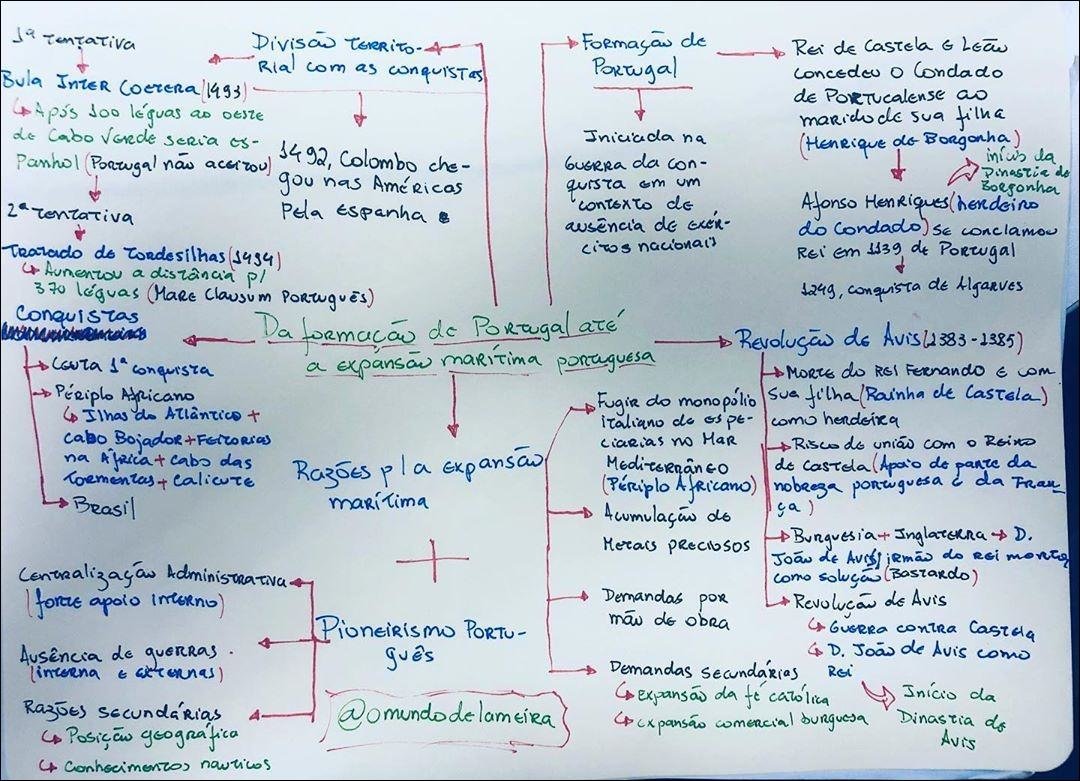 1ª tentativa
Bula Inter Coetera (1493)
↳ Após 100 léguas ao oeste
de Cabo Verde seria es-
panhol (Portugal não aceitou)
2ª tentativa
Tratado de Tordesilhas (1494)
↳ Aumentou a distância p/
370 léguas (Mare Clausum Português)
Divisão territo-
rial com as conquistas
1492, Colombo che-
gou nas Américas
pela Espanha
Formação de
Portugal
Iniciada na
Guerra da con-
quista em um
contexto de
ausência de exér-
citos nacionais
Rei de Castela e Leão
concedeu o Condado
de Portucalense ao
marido de sua filha
(Henrique de Borgonha)
início da
Dinastia de
Borgonha
Afonso Henriques (herdeiro
do Condado) se conclamou
Rei em 1139 de Portugal
1249, conquista de Algarves
Da formação de Portugal até
a expansão marítima portuguesa
Conquistas
Ceuta 1ª conquista
Périplo Africano
↳ Ilhas do Atlântico +
cabo Bojador + Feitorias
na África + Cabo das
Tormentas + Calicute
Brasil
Revolução de Avis (1383-1385)
Morte do Rei Fernando e com
sua filha (Rainha de Castela)
como herdeira
Risco de união com o Reino
de Castela (Apoio de parte da
nobreza portuguesa e da Fran-
ça)
Burguesia + Inglaterra → D.
João de Avis, irmão do rei morto,
como solução (Bastardo)
Revolução de Avis
↳ Guerra contra Castela
↳ D. João de Avis como
Rei
Início da
Dinastia de
Avis
Razões p/ a expansão
marítima
Fugir do monopólio
italiano de espe-
ciarias no Mar
Mediterrâneo
(Périplo Africano)
Acumulação de
Metais preciosos
Demandas por
mão de obra
Demandas secundárias
↳ expansão da fé católica
↳ expansão comercial burguesa
+
Pioneirismo Portu-
guês
Centralização Administrativa
(forte apoio interno)
Ausência de guerras
(interna e externas)
Razões secundárias
↳ Posição geográfica
↳ Conhecimentos nauticos
@omundodelameira